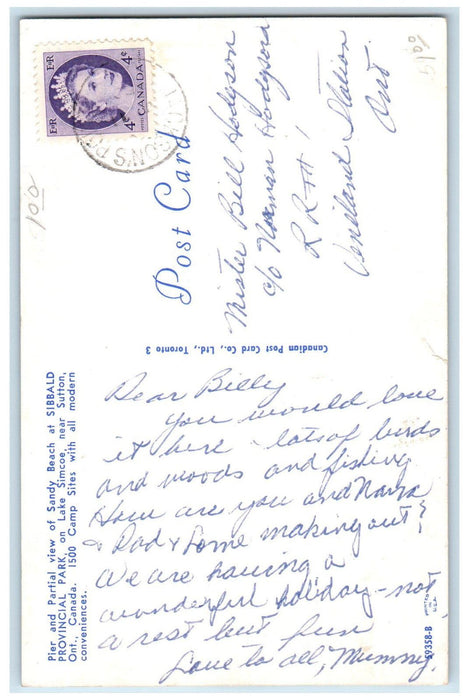 Pier and Partial view of Sandy Beach at SIBBALD
PROVINCIAL PARK, on Lake Simcoe, near Sutton,
Ont., Canada. 1500 Camp Sites with all modern
conveniences.
Dear Billy
You would love
it here - lots of birds
and woods and fishing
How are you and Nana
& Dad & Lorne making out?
We are having a
wonderful holiday - not
a rest but fun
Love to all, Mummy.
Canadian Post Card Co., Ltd., Toronto 3
Post Card
E II R
CANADA
4¢
4¢
E II R
SON'S P
Mister Bill Hodgson
c/o Norman Hodgson
R R # 1
Vineland Station
Ont.
100
PRINTED
IN
U.S.A.